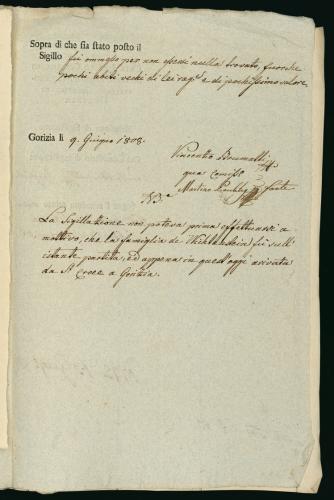 Sopra di che sia stato posto il
Sigillo fù ommesso per non essersi nulla trovato, fuorche
pochi abiti vechi di lei rag.e e di pochissimo valore.
Gorizia li 9. Giugno 1808.
Vincentio
qua Comiss.
Martino
NB.a
La Sigillazione non poteva prima effettuarsi a
mottivo, che la famiglia de fù sull'
istante partita, ed appena in quest'oggi arivata
da S.t Croce a Gorizia.